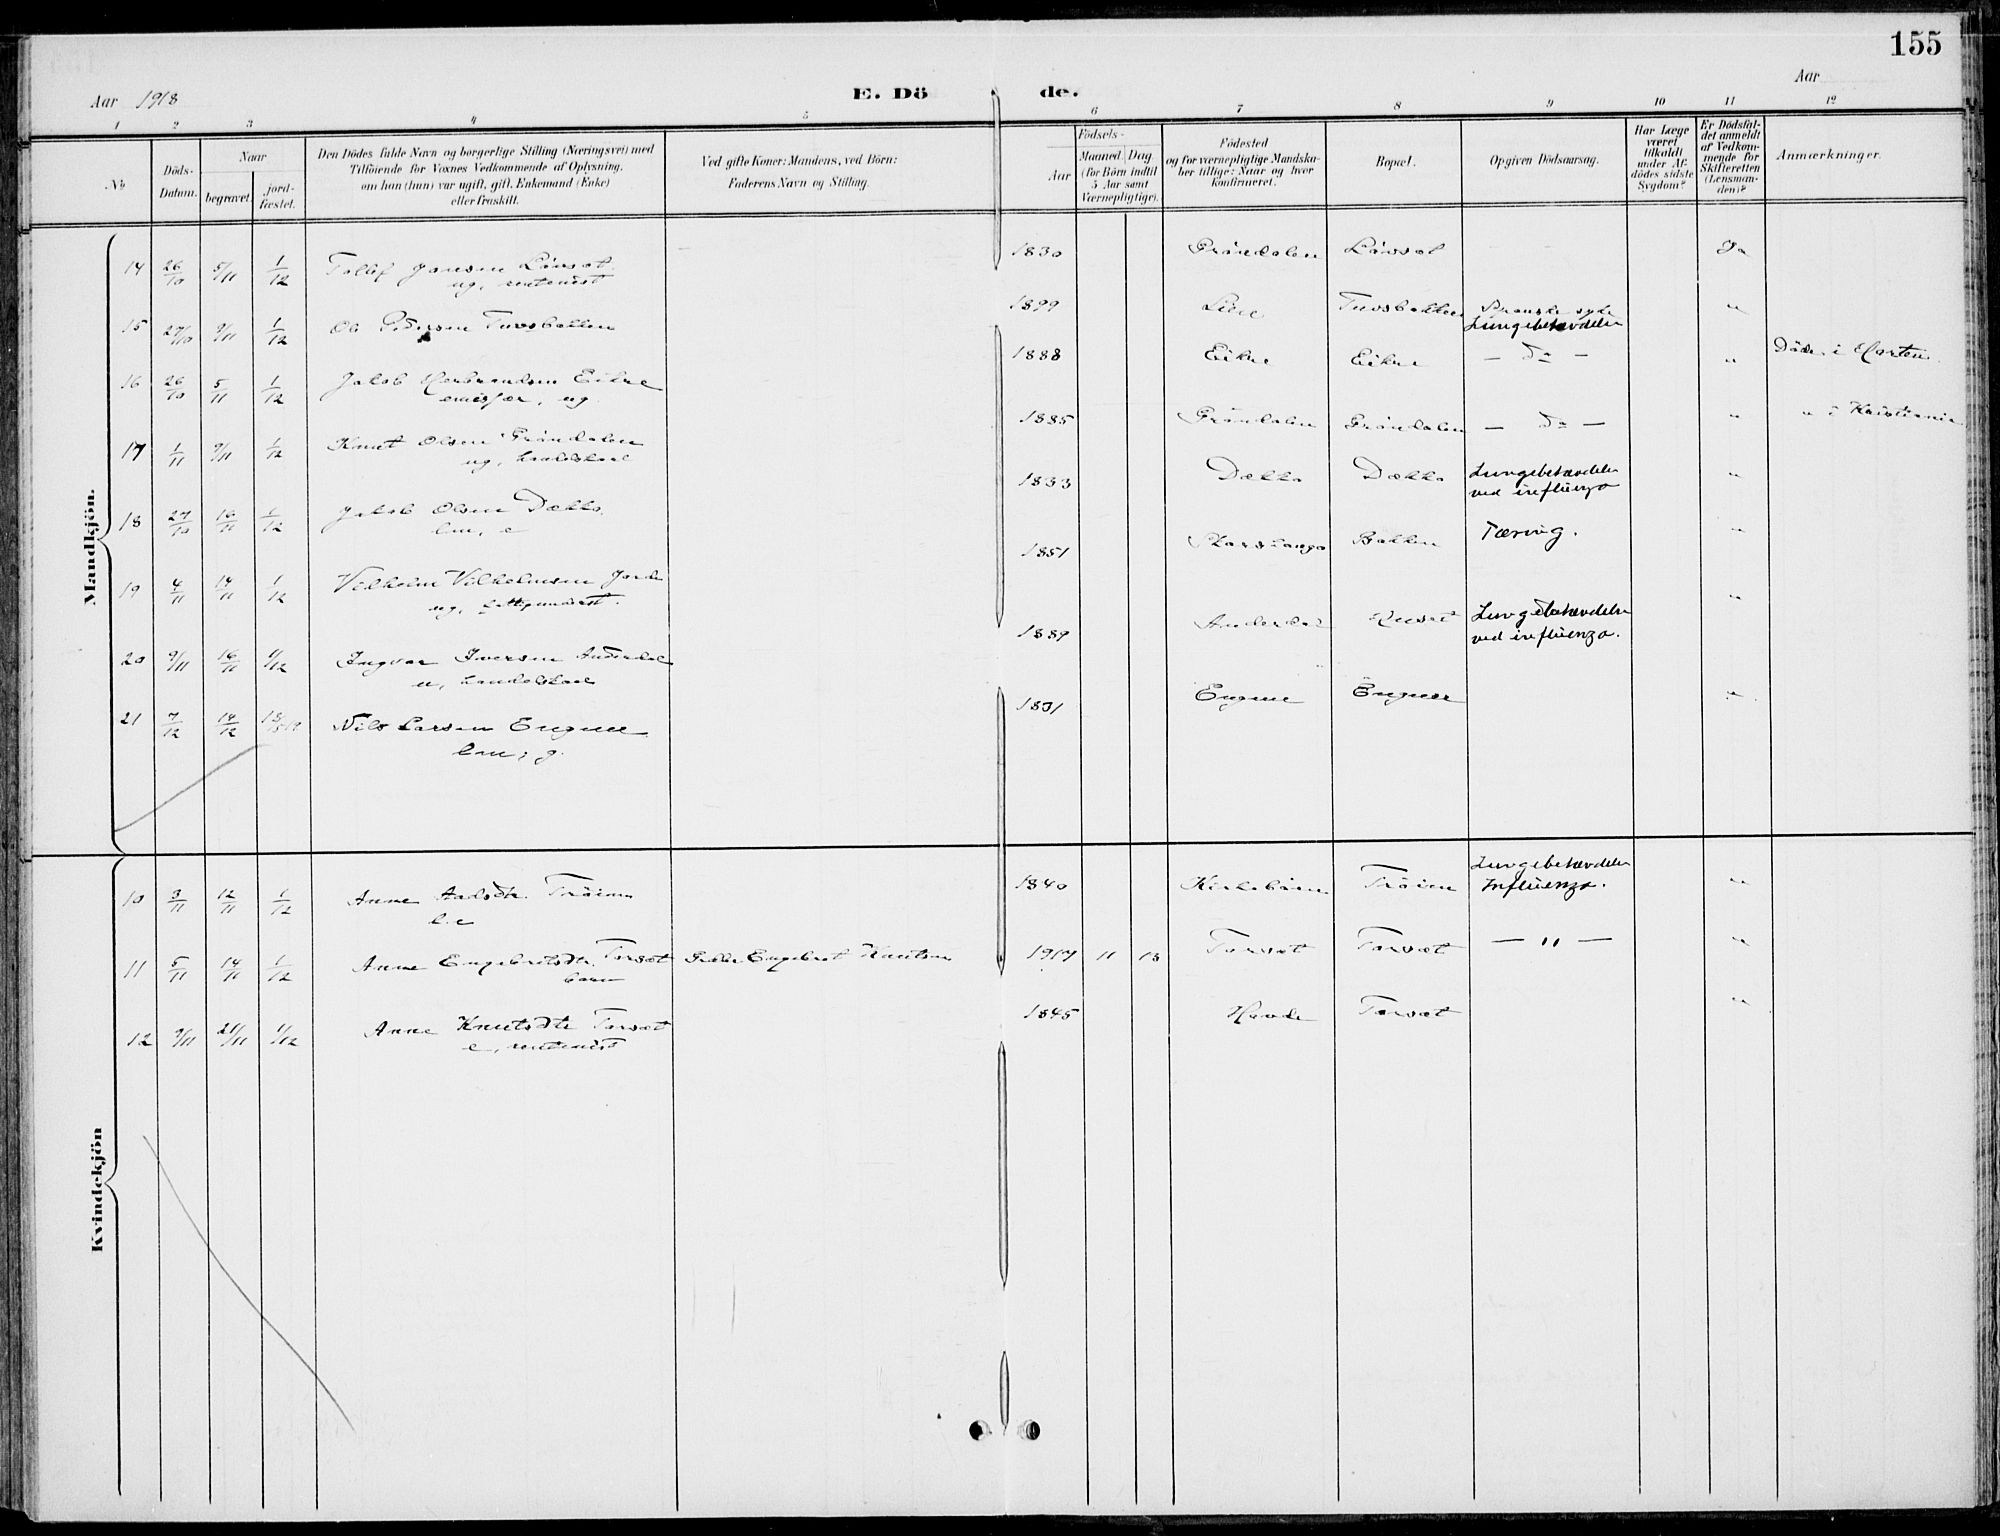 155
Aar 1918
E. Dö de.
Aar
1 2 3 4 5 6 7 8 9 10 11 12
№
Döds-Datum.
Naar
begravet.
jord-fæstet.
Den Dödes fulde Navn og borgerlige Stilling (Næringsvei) med
Tilföiende for Voxnes Vedkommende af Oplysning,
om han (hun) var ugift, gift, Enkemand (Enke)
eller fraskilt.
Ved gifte Koner: Mandens, ved Börn:
Faderens Navn og Stilling.
Födsels-
Aar
Maaned. Dag
(for Börn indtil
5 Aar samt
Værnepligtige).
Födested
og for værnepligtige Mandska-
ber tillige: Naar og hvor
konfirmeret.
Bopæl.
Opgiven Dödsaarsag.
Har Læge
været
tilkaldt
under Af-
dödes sidste
Sygdom?
Er Dödsfal-
det anmeldt
af Vedkom-
mende for
Skifteretten
(Lensman-
den)?
Anmærkninger.
Mandkjön.
14 26/10 5/11 1/12 Jonsen Lövset 1830 Gröndalen Lövset Ja
ug,
15 27/10 9/11 1/12 Ol Pedersen Tuvsbakken 1899 Tuvsbakken Spanske syke "
Lungebetændelse
16 26/10 5/11 1/12 Jakob Herbrandsen Eikre 1888 Eikre Eikre — do — " Döde i Horten
emissær, ug.
17 1/11 9/11 1/12 Knut Olsen Gröndalen 1885 Gröndalen Gröndalen — do — " " i Kristiania
ug,
18 27/10 16/11 1/12 Jakob Olsen Dekko 1833 Dekko Dekko Lungebetændelse "
ved influenza
e
19 4/11 14/11 1/12 Vilhelm Vilhelmsen 1851 Bakken Tæring. "
ug,
20 9/11 16/11 1/12 Ingvar Iversen Anderdal 1889 Anderdal Lungebetændelse "
ved influenza.
21 7/12 14/12 Nils Larsen Engene 1831 Engene "
g.
Kvindekjön
10 3/11 12/11 1/12 Anne Tröim 1840 Kirkeböen Tröim Lungebetændelse "
Influenza.
11 5/11 14/11 1/12 Anne Engebretsdtr. Torset Engebret Knutsen 1917 11 13 Torset Torset — " — "
barn
12 9/11 21/11 1/12 Anne Knutsdtr Torset 1845 Hovde Torset "
e,